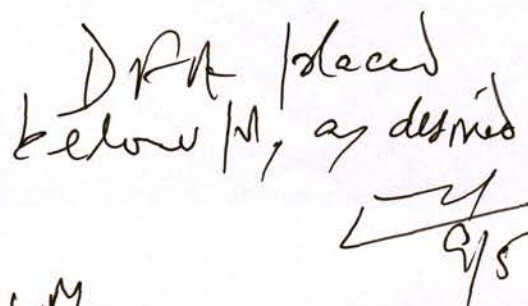 DFA placed
below pl, as desired
9/5